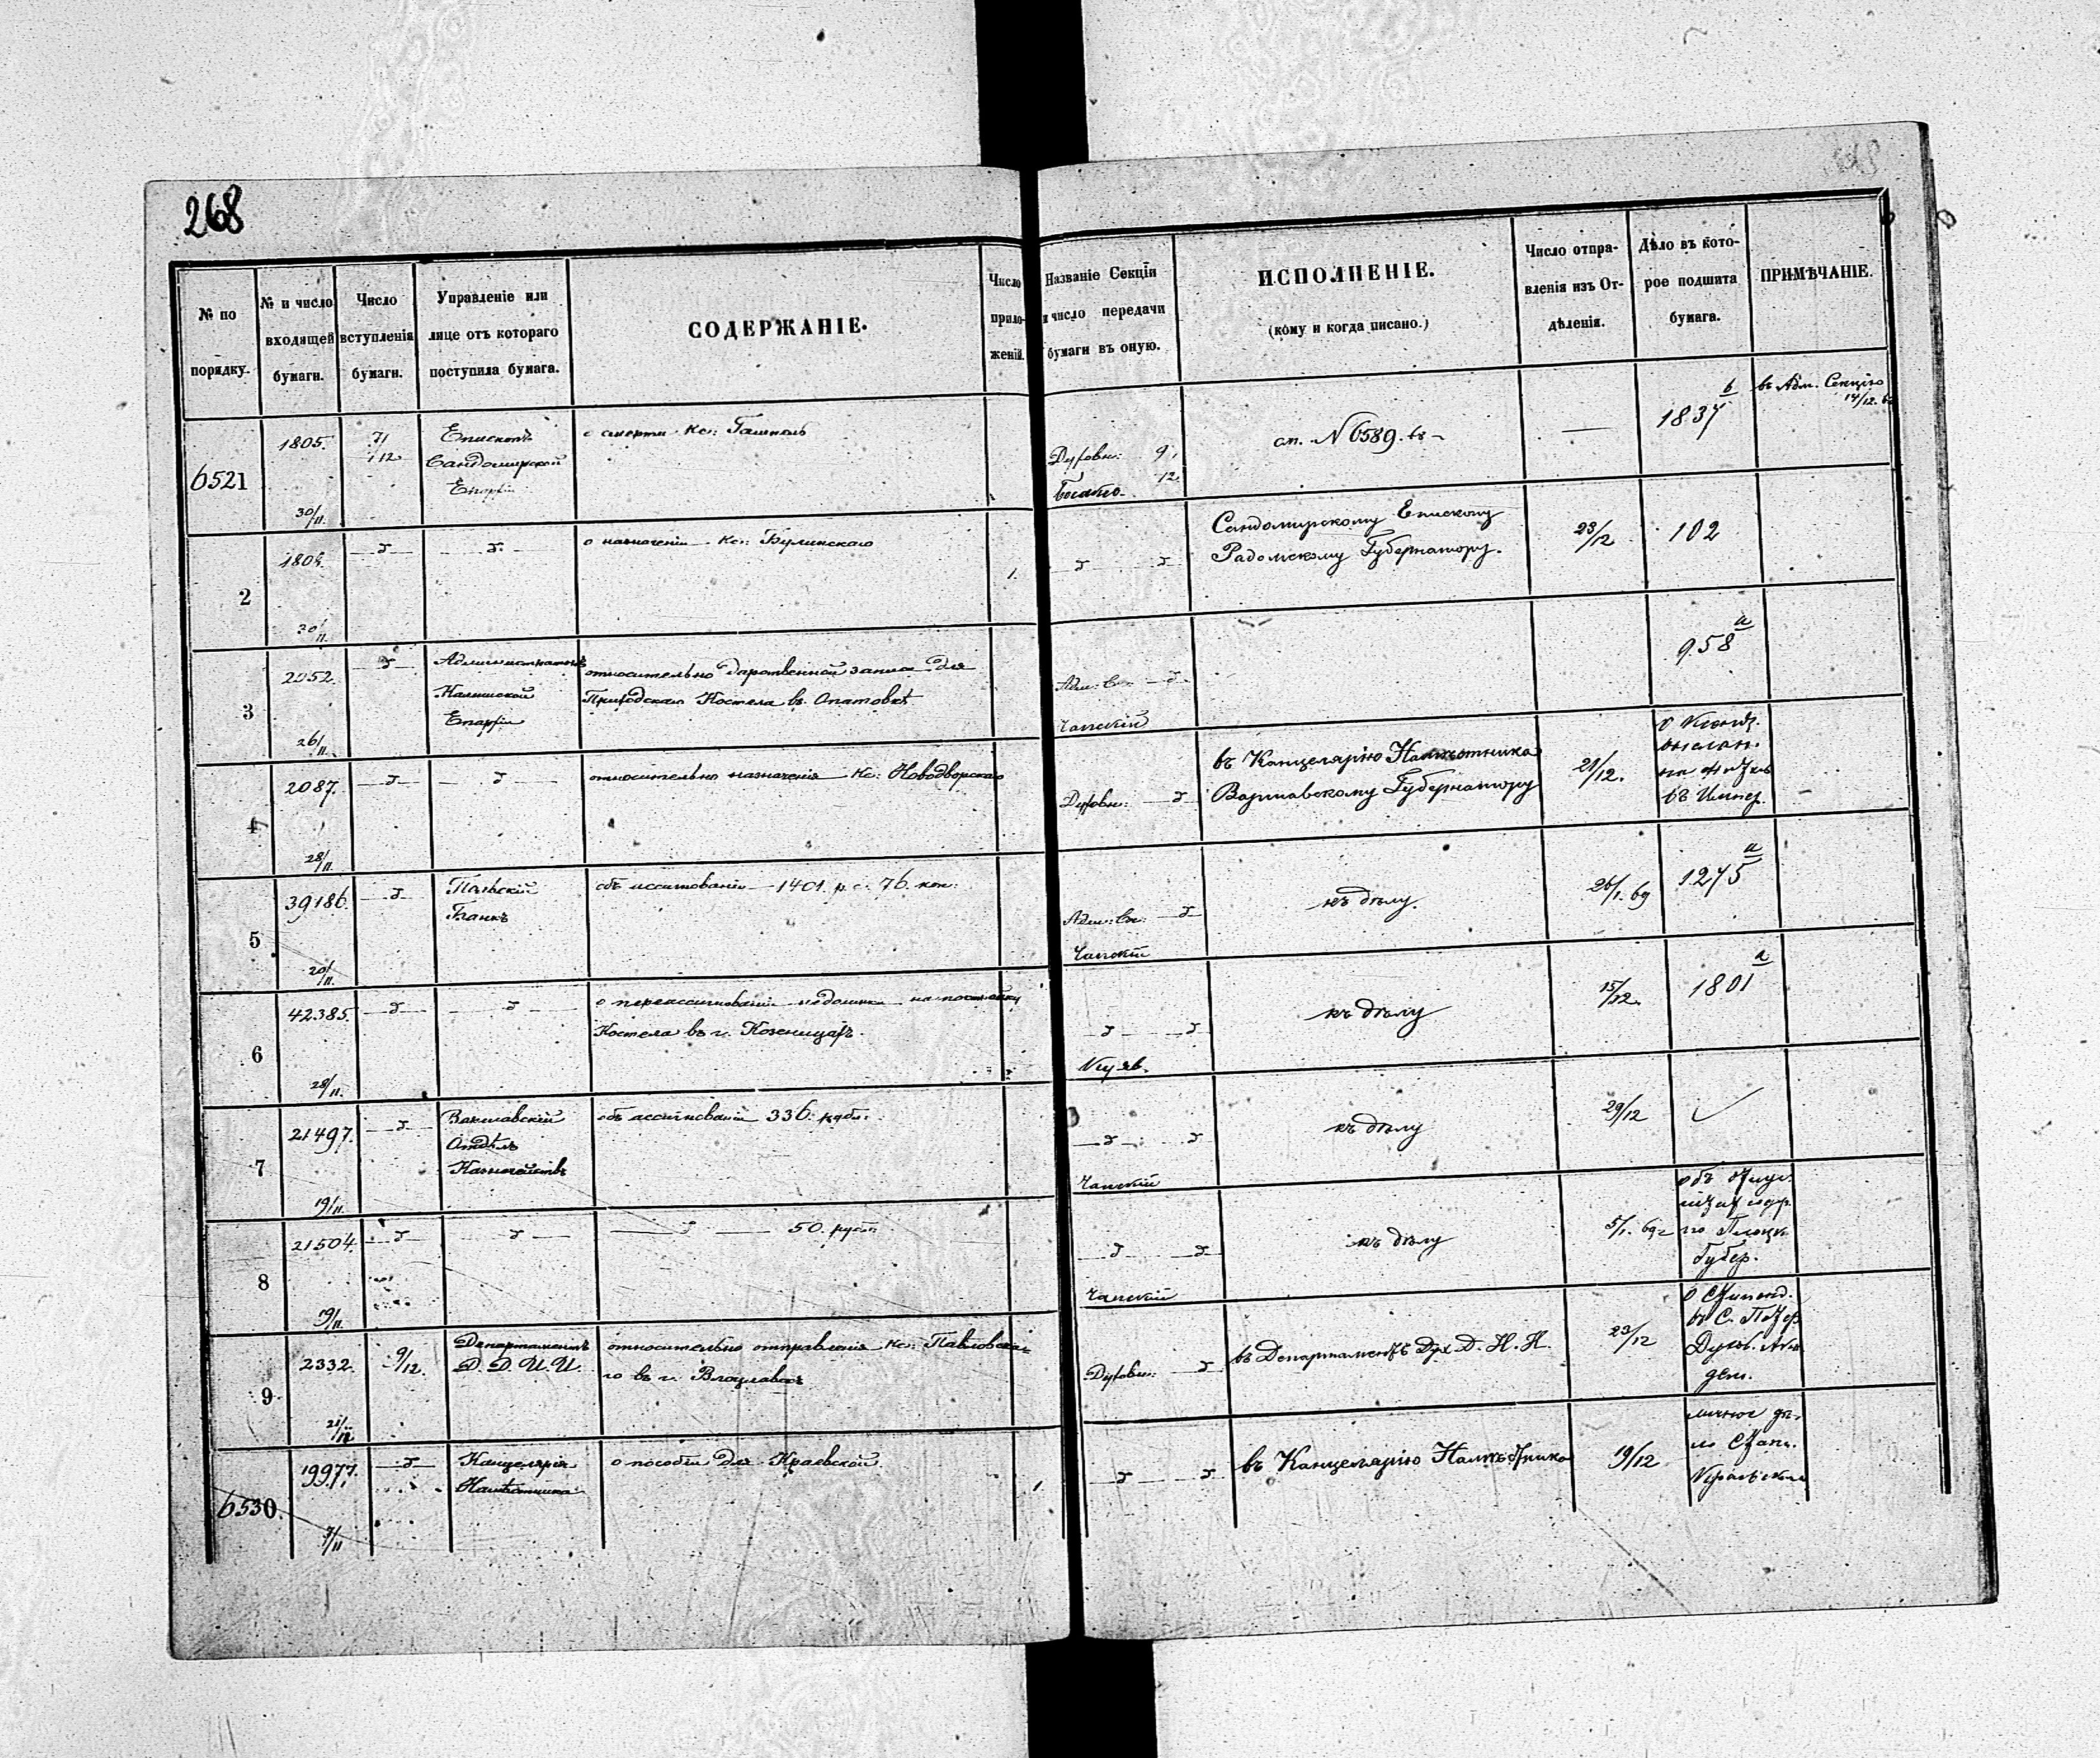 268
№ по порядку.
№ и число входящей бумаги.
Число вступленія бумаги.
Управленіе или лице отъ котораго поступила бумага.
СОДЕРЖАНІЕ.
Число приложеній.
Названіе Секціи и число передачи бумаги въ оную.
ИСПОЛНЕНІЕ.
(кому и когда писано.)
Число отправленія изъ Отдѣленія.
Дѣло въ которое подшита бумага.
ПРИМѢЧАНІЕ.
6521
1805.
30/11.
7/12
Епископъ
Сандомирской
Епархіи
о смерти Кс:
Духовн: 9/12
см. № 6589.
1837 b
въ Адм. Секцію
14/12.
2
30/11.
о назначеніи Кс: Булинскаго
1.
Сандомирскому Епископу
Радомскому Губернатору.
23/12
102
3
2052.
26/11.
Администраторъ
Калишской
Епархіи
относительно дарственной записи для
Приходскаго Костела въ Опатовкѣ
Адм: Се:
Чапскій
958 a
4
2087.
28/11.
относительно назначенія Кс: Новодворскаго
Духовн:
въ Канцелярію Намѣстника
Варшавскому Губернатору
21/12.
о Ксендз.
выслан.
на жит.
въ Импер.
5
39186.
20/11.
Польскій
Банкъ
объ ассигнованіи 1401. р. с. 76. коп.
Адм: Се:
Чапскій
къ дѣлу.
26/1. 69
1275 a
6
42385.
28/11.
о переассигнованіи недоимки на постройку
Костела въ г. Козеницахъ.
Куяв.
къ дѣлу
15/12.
1801 a
7
21497.
19/11.
Варшавскій
Отдѣлъ
Казначействъ
объ ассигнованіи 336. рубл.
Чапскій
къ дѣлу
29/12
8
21504.
19/11.
50. рубл.
Чапскій
къ дѣлу
5/1. 69
по Плоцк.
Губер.
9
2332.
9/12.
Департаментъ
Д. Д. И. И.
относительно отправленія Кс: Павловскаго
въ г. Влоцлавскъ
Духовн:
въ Департаментъ Дух. Д. И. И.
23/12
о Стипенд.
въ С. Петер.
Духов. Ака
дем.
6530.
19977.
7/11
Канцелярія
Намѣстника
о пособіи для Краевской.
1
въ Канцелярію Намѣстника
19/12
личное дѣ-
ло
Краевской